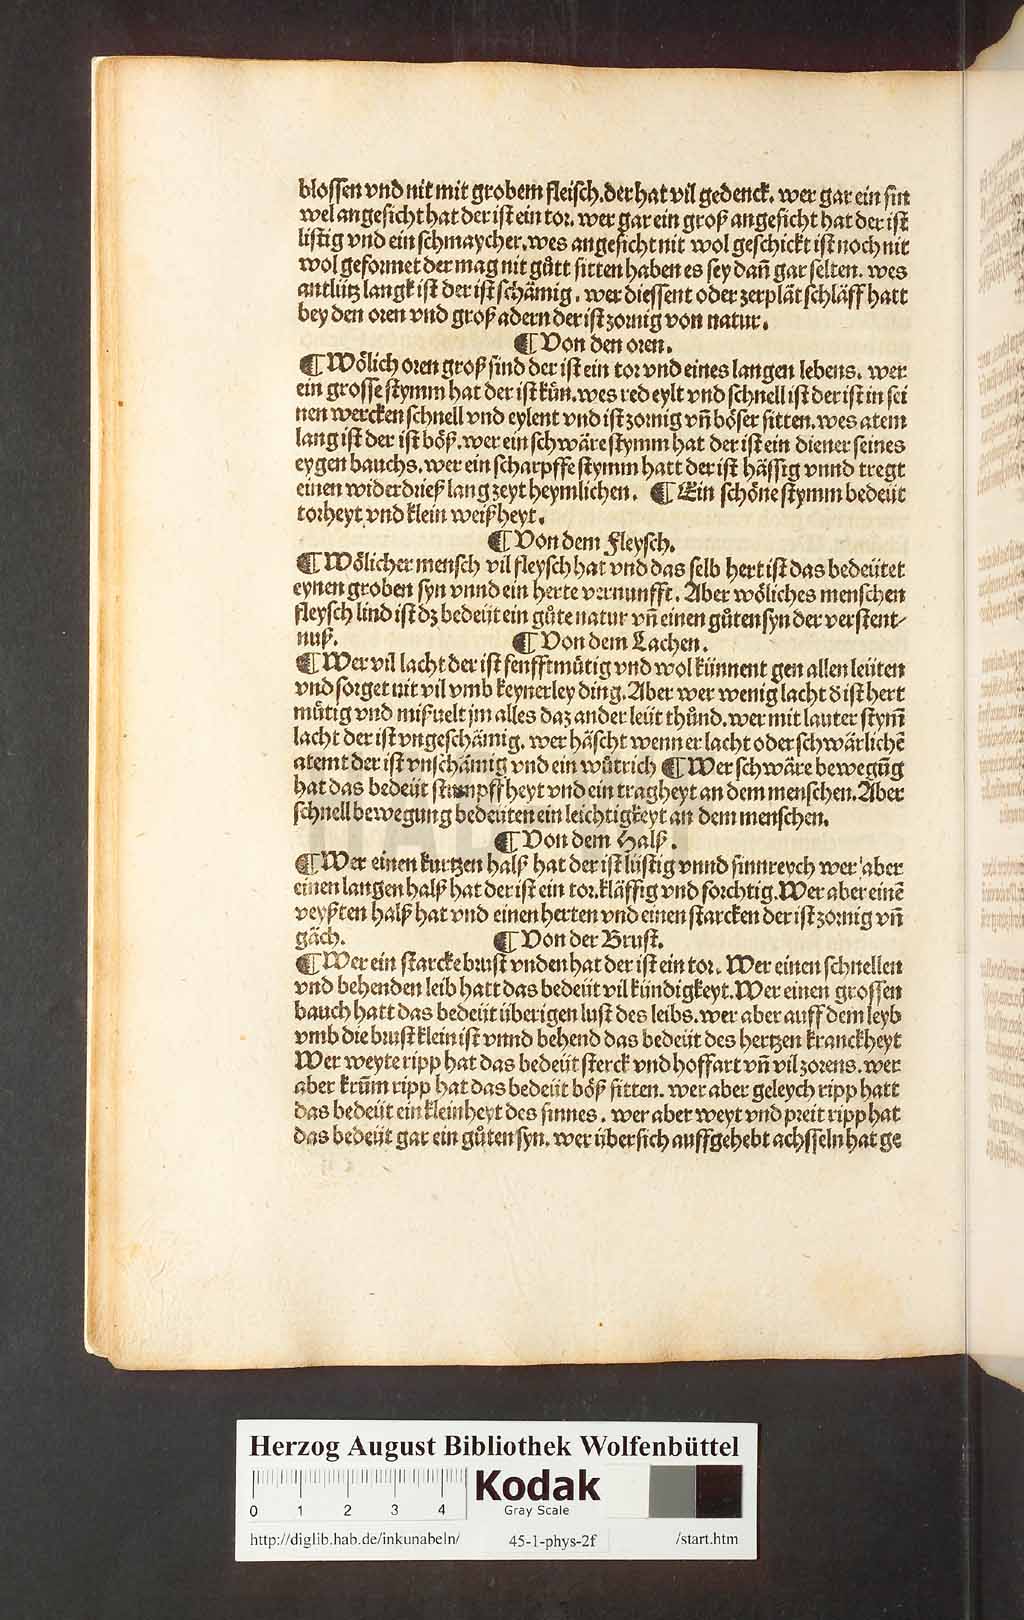 blossen vnd nit mit grobem fleisch. der hat vil gedenck. wer gar ein sin
wel angesicht hat der ist ein tor. wer gar ein groß angesicht hat der ist
listig vnd ein schmaycher. wes angesicht nit wol geschickt ist noch nit
wol geformet der mag nit gůtt sitten haben es sey dañ gar selten. wes
antlütz langk ist der ist schämig. wer diessent oder zerplãt schläff hatt
bey den oren vnd groß adern der ist zornig von natur.
¶ Von den oren.
¶ Wölich oren groß sind der ist ein tor vnd eines langen lebens. wer
ein grosse stymm hat der ist kün. wes red eylt vnd schnell ist der ist in sei
nen wercken schnell vnd eylent vnd ist zornig vñ böser sitten. wes atem
lang ist der ist böß. wer ein schwäre stymm hat der ist ein diener seines
eygen bauchs. wer ein scharpffe stymm hatt der ist hässig vnnd tregt
einen widerdrieß lang zeyt heymlichen. ¶ Ein schöne stymm bedeüt
torheyt vnd klein weißheyt.
¶ Von dem Fleysch.
¶ Wölicher mensch vil fleysch hat vnd das selb hert ist das bedeütet
eynen groben syn vnnd ein herte vernunfft. Aber wöliches menschen
fleysch lind ist dz bedeüt ein gůte natur vñ einen gůten syn der verstent⸗
nuß. ¶ Von dem Lachen.
¶ Wer vil lacht der ist senfftmütig vnd wol künnent gen allen leüten
vnd sorget nit vil vmb keynerley ding. Aber wer wenig lacht d ist hert
mütig vnd mißuelt jm alles daz ander leüt thůnd. wer mit lauter stym̃
lacht der ist vngeschämig. wer häscht wenn er lacht oder schwärlichẽ
atemt der ist vnschämig vnd ein wütrich ¶ Wer schwäre bewegũg
hat das bedeüt stumpffheyt vnd ein tragheyt an dem menschen. Aber
schnell bewegung bedeüten ein leichtigkeyt an dem menschen.
¶ Von dem Halß.
¶ Wer einen kurtzen halß hat der ist lüstig vnnd sinnreych wer aber
einen langen halß hat der ist ein tor. kläffig vnd forchtig. Wer aber einẽ
veyßten halß hat vnd einen herten vnd einen starcken der ist zornig vñ
gäch. ¶ Von der Brust.
¶ Wer ein starcke brust vnden hat der ist ein tor. Wer einen schnellen
vnd behenden leib hatt das bedeüt vil kündigkeyt. Wer einen grossen
bauch hatt das bedeüt überigen lust des leibs. wer aber auff dem leyb
vmb die brust klein ist vnnd behend das bedeüt des hertzen kranckheyt
Wer weyte ripp hat das bedeüt sterck vnd hoffart vñ vil zorens. wer
aber krũm ripp hat das bedeüt böß sitten. wer aber geleych ripp hatt
das bedeüt ein kleinheyt des sinnes. wer aber weyt vnd preit ripp hat
das bedeüt gar ein gůten syn. wer über sich auffgehebt achsseln hat ge
Herzog August Bibliothek Wolfenbüttel
0 1 2 3 4
Kodak
Gray Scale
http://diglib.hab.de/inkunabeln/ 45-1-phys-2f /start.htm